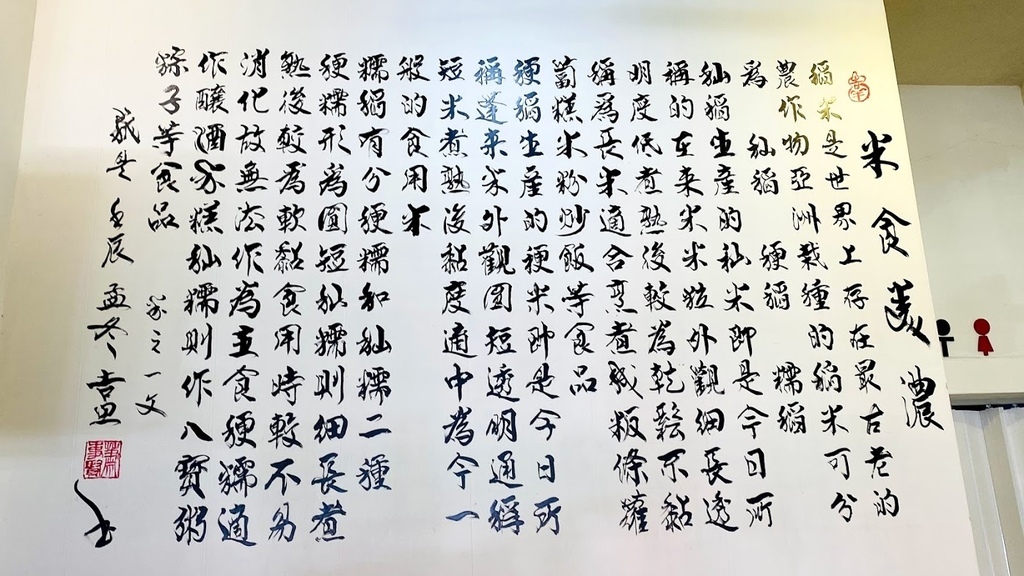 米食美濃
稻米是世界上存在最古老的
農作物亞洲栽種的稻米可分
為 秈稻 粳稻 糯稻
秈稻生產的秈米即是今日所
稱的在來米米粒外觀細長透
明度低煮熟後較為乾鬆不黏
稱為長米適合烹煮成粄條蘿
蔔糕米粉炒飯等食品
粳稻生產的粳米即是今日所
稱蓬來米外觀圓短透明通稱
短米煮熟後黏度適中為今一
般的食用米
糯稻有分粳糯和秈糯二種
粳糯形為圓短秈糯則細長煮
熟後較為軟黏食用時較不易
消化故無法作為主食粳糯適
作釀酒年糕秈糯則作八寶粥
粽子等食品 之一文
歲 壬辰孟冬